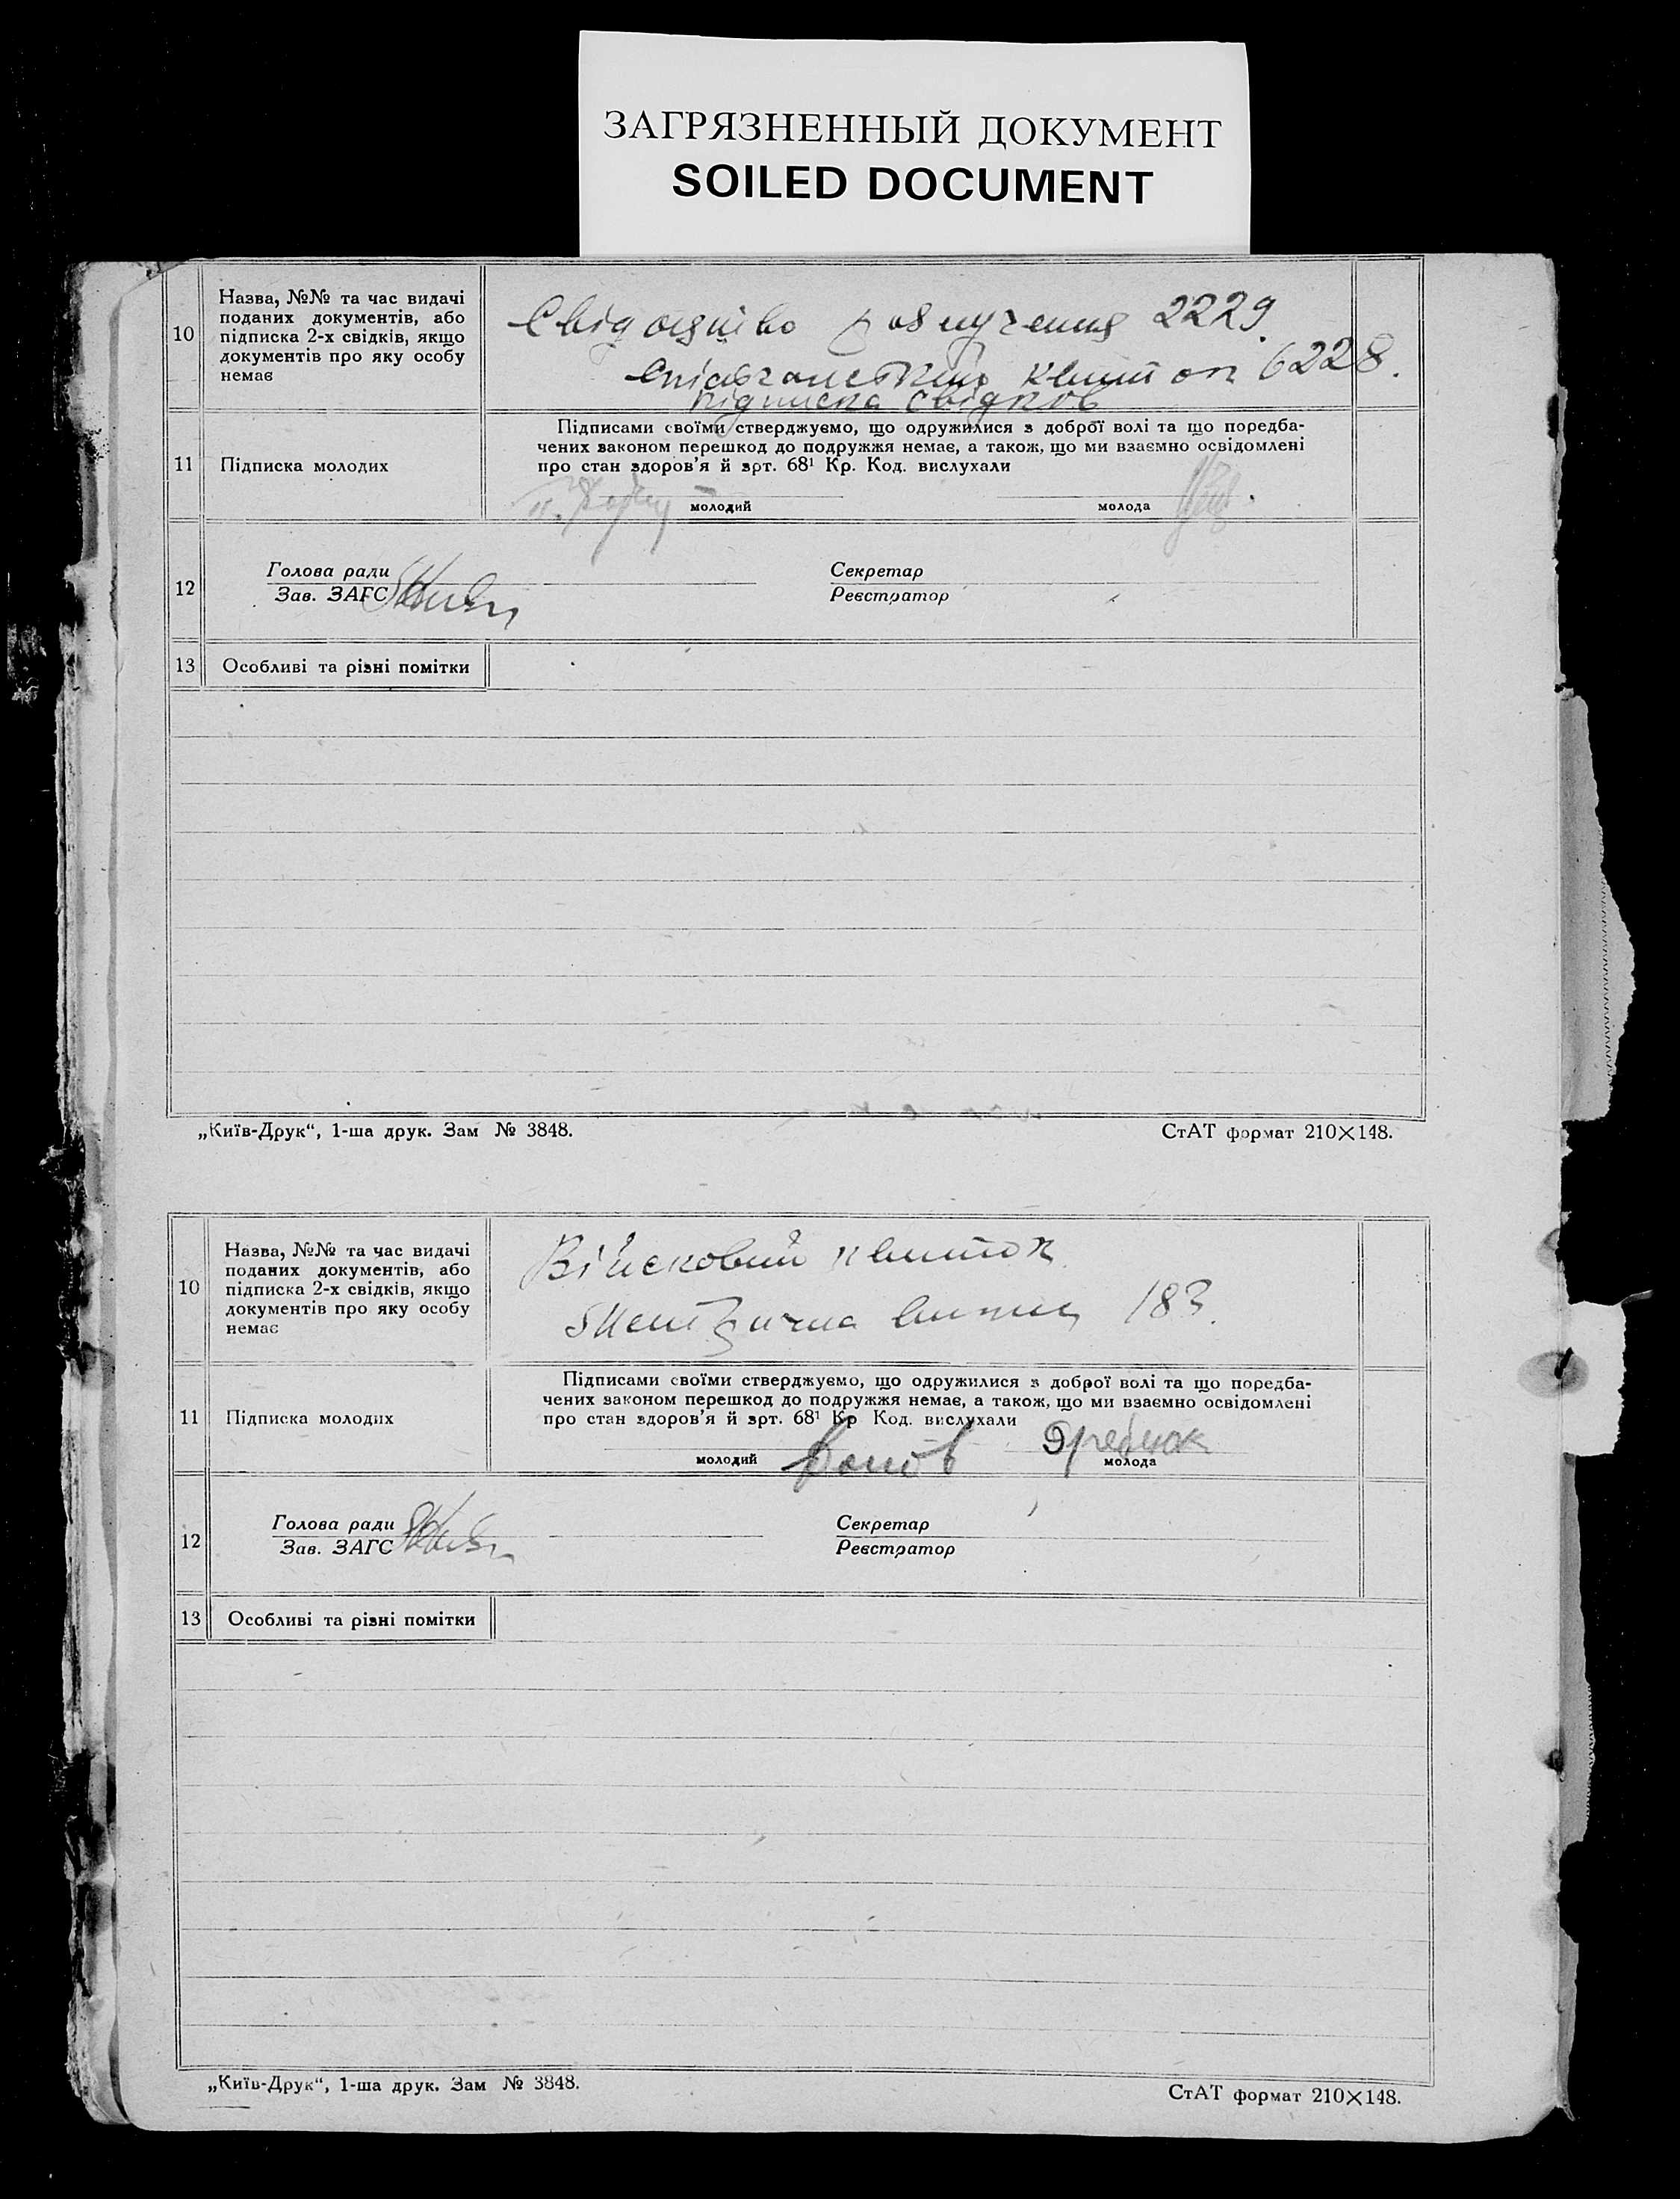 ЗАГРЯЗНЕННЫЙ ДОКУМЕНТ
SOILED DOCUMENT
10
Назва, №№ та час видачі
поданих документів, або
підписка 2-х свідків, якщо
документів про яку особу
немає
2229.
квиток 6228.
підписка свідків
11
Підписка молодих
Підписами своїми стверджуємо, що одружилися з доброї волі та що поредба-
чених законом перешкод до подружжя немає, а також, що ми взаємно освідомлені
про стан здоров'я й арт. 68¹ Кр. Код. вислухали
молодий
молода
12
Голова ради
Зав. ЗАГС
Секретар
Реєстратор
13
Особливі та різні помітки
„Київ-Друк“, 1-ша друк. Зам № 3848.
СтАТ формат 210×148.
10
Назва, №№ та час видачі
поданих документів, або
підписка 2-х свідків, якщо
документів про яку особу
немає
Військовий квиток
Метрична 183.
11
Підписка молодих
Підписами своїми стверджуємо, що одружилися з доброї волі та що поредба-
чених законом перешкод до подружжя немає, а також, що ми взаємно освідомлені
про стан здоров'я й арт. 68¹ Кр Код. вислухали
молодий
молода
12
Голова ради
Зав. ЗАГС
Секретар
Реєстратор
13
Особливі та різні помітки
„Київ-Друк“, 1-ша друк. Зам № 3848.
СтАТ формат 210×148.